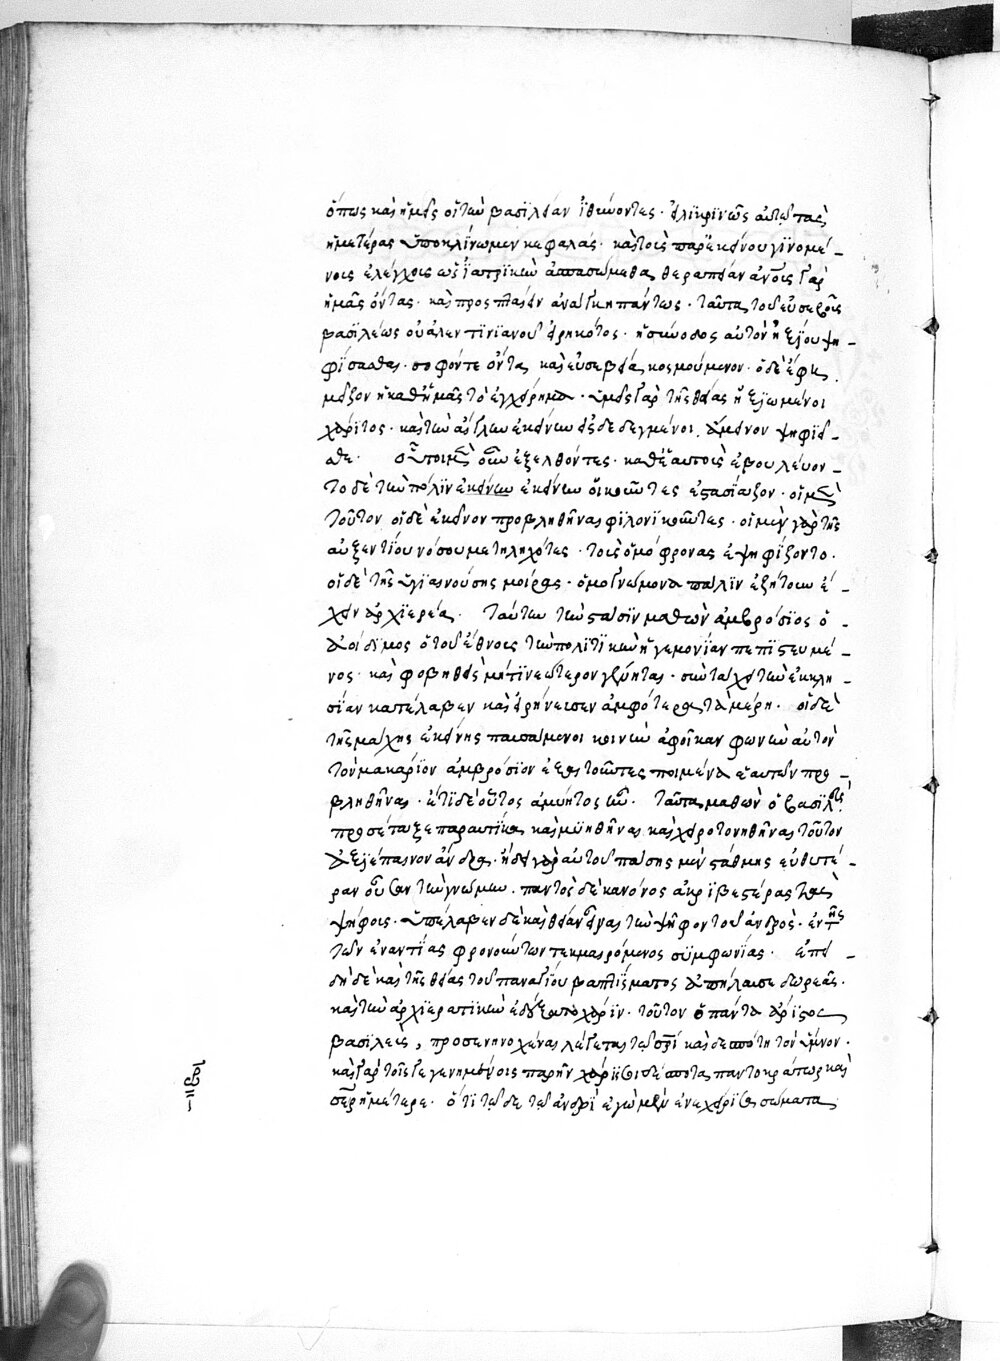 ὅπως καὶ ἡμεῖς οἱ τὴν βασιλείαν ἰθύνοντες· εἰλικρινῶς αὐτῶ τὰς
ἡμετέρας ὑποκλίνωμεν κεφαλάς· καὶ τοὺς παρ' ἐκείνου γινομέ-
νους ἐλέγχους ὡς ἰατρικὴν ἀσπασώμεθα θεραπείαν ἀνους γὰρ
ἡμᾶς ὄντας· καὶ προσπταίειν ἀνάγκη πάντως· ταῦτα τοῦ εὐσεβοῦς
βασιλέως οὐαλεντινιανοῦ εἰρηκότος· ἡ σύνοδος αὐτὸν ἠξίου ψη-
φίσασθαι· σοφόν τε ὄντα, καὶ εὐσεβείᾳ κοσμούμενον· ὁ δὲ ἔφη,
μεῖζον ἢ καθ' ἡμᾶς τὸ ἐγχείρημα· ὑμεῖς γὰρ τῆς θείας ἠξιωμένοι
χάριτος· καὶ τὴν αἴγλην ἐκείνην εἰσδεδεγμένοι, ἄμεινον ψηφιεῖ-
σθε· οὕτοι μὲν οὖν ἐξελθόντες· καθ' ἑαυτοὺς ἐβουλεύον-
το δὲ τὴν πόλιν ἐκείνην ἐκείνην οἰκοῦντες ἐστασίαζον· οἱ μὲν
τοῦτον οἱ δὲ ἐκεῖνον προβληθῆναι φιλονικοῦντες· οἱ μὲν γὰρ τῆς
αὐξεντίου νόσου μετειληχότες· τοὺς ὁμόφρονας ἐψηφίζοντο·
οἱ δὲ τῆς ὑγιαινούσης μοίρας· ὁμογνώμονα πάλιν ἐζήτουν ἔ-
χειν ἀρχιερέα· ταύτην τὴν στάσιν μαθὼν ἀμβρόσιος ὁ
ἀοίδιμος ὁ τοῦ ἔθνους τὴν πολιτικὴν ἡγεμονίαν πεπιστευμέ-
νος· καὶ φοβηθεὶς μή τι νεώτερον γένηται· σὺν τάχει τὴν ἐκκλη-
σίαν κατέλαβεν καὶ εἰρήνευσεν ἀμφότερα τὰ μέρη· οἱ δὲ
τῆς μάχης ἐκείνης παυσάμενοι κοινὴν ἀφῆκαν φωνὴν αὐτὸν
τὸν μακάριον ἀμβρόσιον ἐξαιτοῦντες ποιμένα ἑαυτῶν προ-
βληθῆναι· ἔτι δὲ οὗτος ἀμύητος ἦν· ταῦτα μαθὼν ὁ βασιλεὺς,
προσέταξε παραυτίκα καὶ μυηθῆναι καὶ χειροτονηθῆναι τοῦτον
ἀξιέπαινον ἄνδρα· ᾔδει γὰρ αὐτοῦ πάσης μὲν στάθμης εὐθυτέ-
ραν οὖσαν τὴν γνώμην· παντὸς δὲ κανόνος ἀκριβεστέρας τὰς
ψήφους· ὑπέλαβεν δὲ καὶ θείαν εἶναι τὴν ψῆφον τοῦ ἀνδρός· ἐκ τῆς
τῶν ἐναντίας φρονούντων τεκμαιρόμενος συμφωνίας· ἐπει-
δὴ δὲ καὶ τῆς θείας τοῦ παναγίου βαπτίσματος ἀπήλαυσε δωρεᾶς·
καὶ τὴν ἀρχιερατικὴν ἐδέξατο χάριν· τοῦτον ὁ πάντα ἄριστος
βασιλεὺς, προσενηνοχέναι λέγεται τῶ σρι καὶ δεσπότη τὸν ὕμνον·
καὶ γὰρ τοῖς γεγενημένοις παρῆν χάρις σοι δέσποτα παντοκράτωρ καὶ
σερ ἡμέτερε· ὅτι τῶδε τῶ ἀνδρὶ ἐγὼ μὲν ἐνεχείρισα σώματα